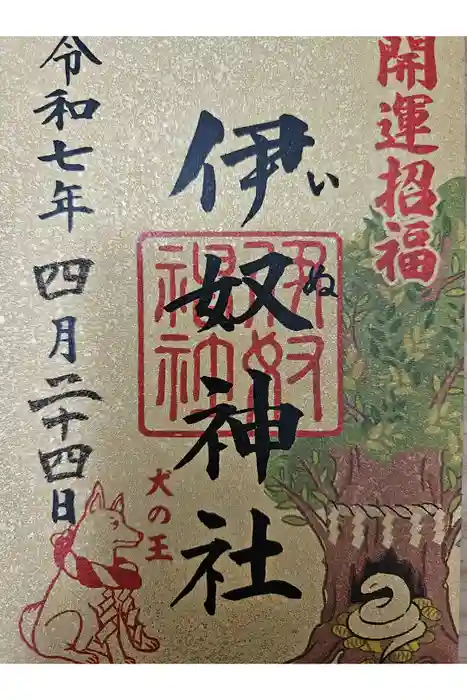 開運招福
伊奴神社
いぬ
伊奴神社
犬の王
令和七年 四月二十四日